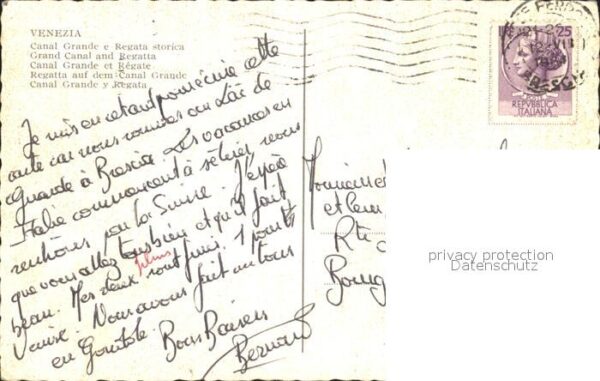 VENEZIA
Canal Grande e Regata storica
Grand Canal and Regatta
Canal Grande et Régate
Regatta auf dem Canal Grande
Canal Grande y Regata
Je mis en retard pour écrire cette
carte car nous sommes au Lac de
Guarde à Brescia. Les vacances en
Italie commencent à se tirer, nous
rentrons par la Suisse. J'espère
que vous allez tous bien et qu'il fait
beau. Mes deux films sont finis. 1 pour
Venise. Nous avons fait un tour
en Gondole. Bons Baisers
Bernard
25
REPVBBLICA
ITALIANA
BRESCIA
Monsieur
et
Rte
privacy protection
Datenschutz